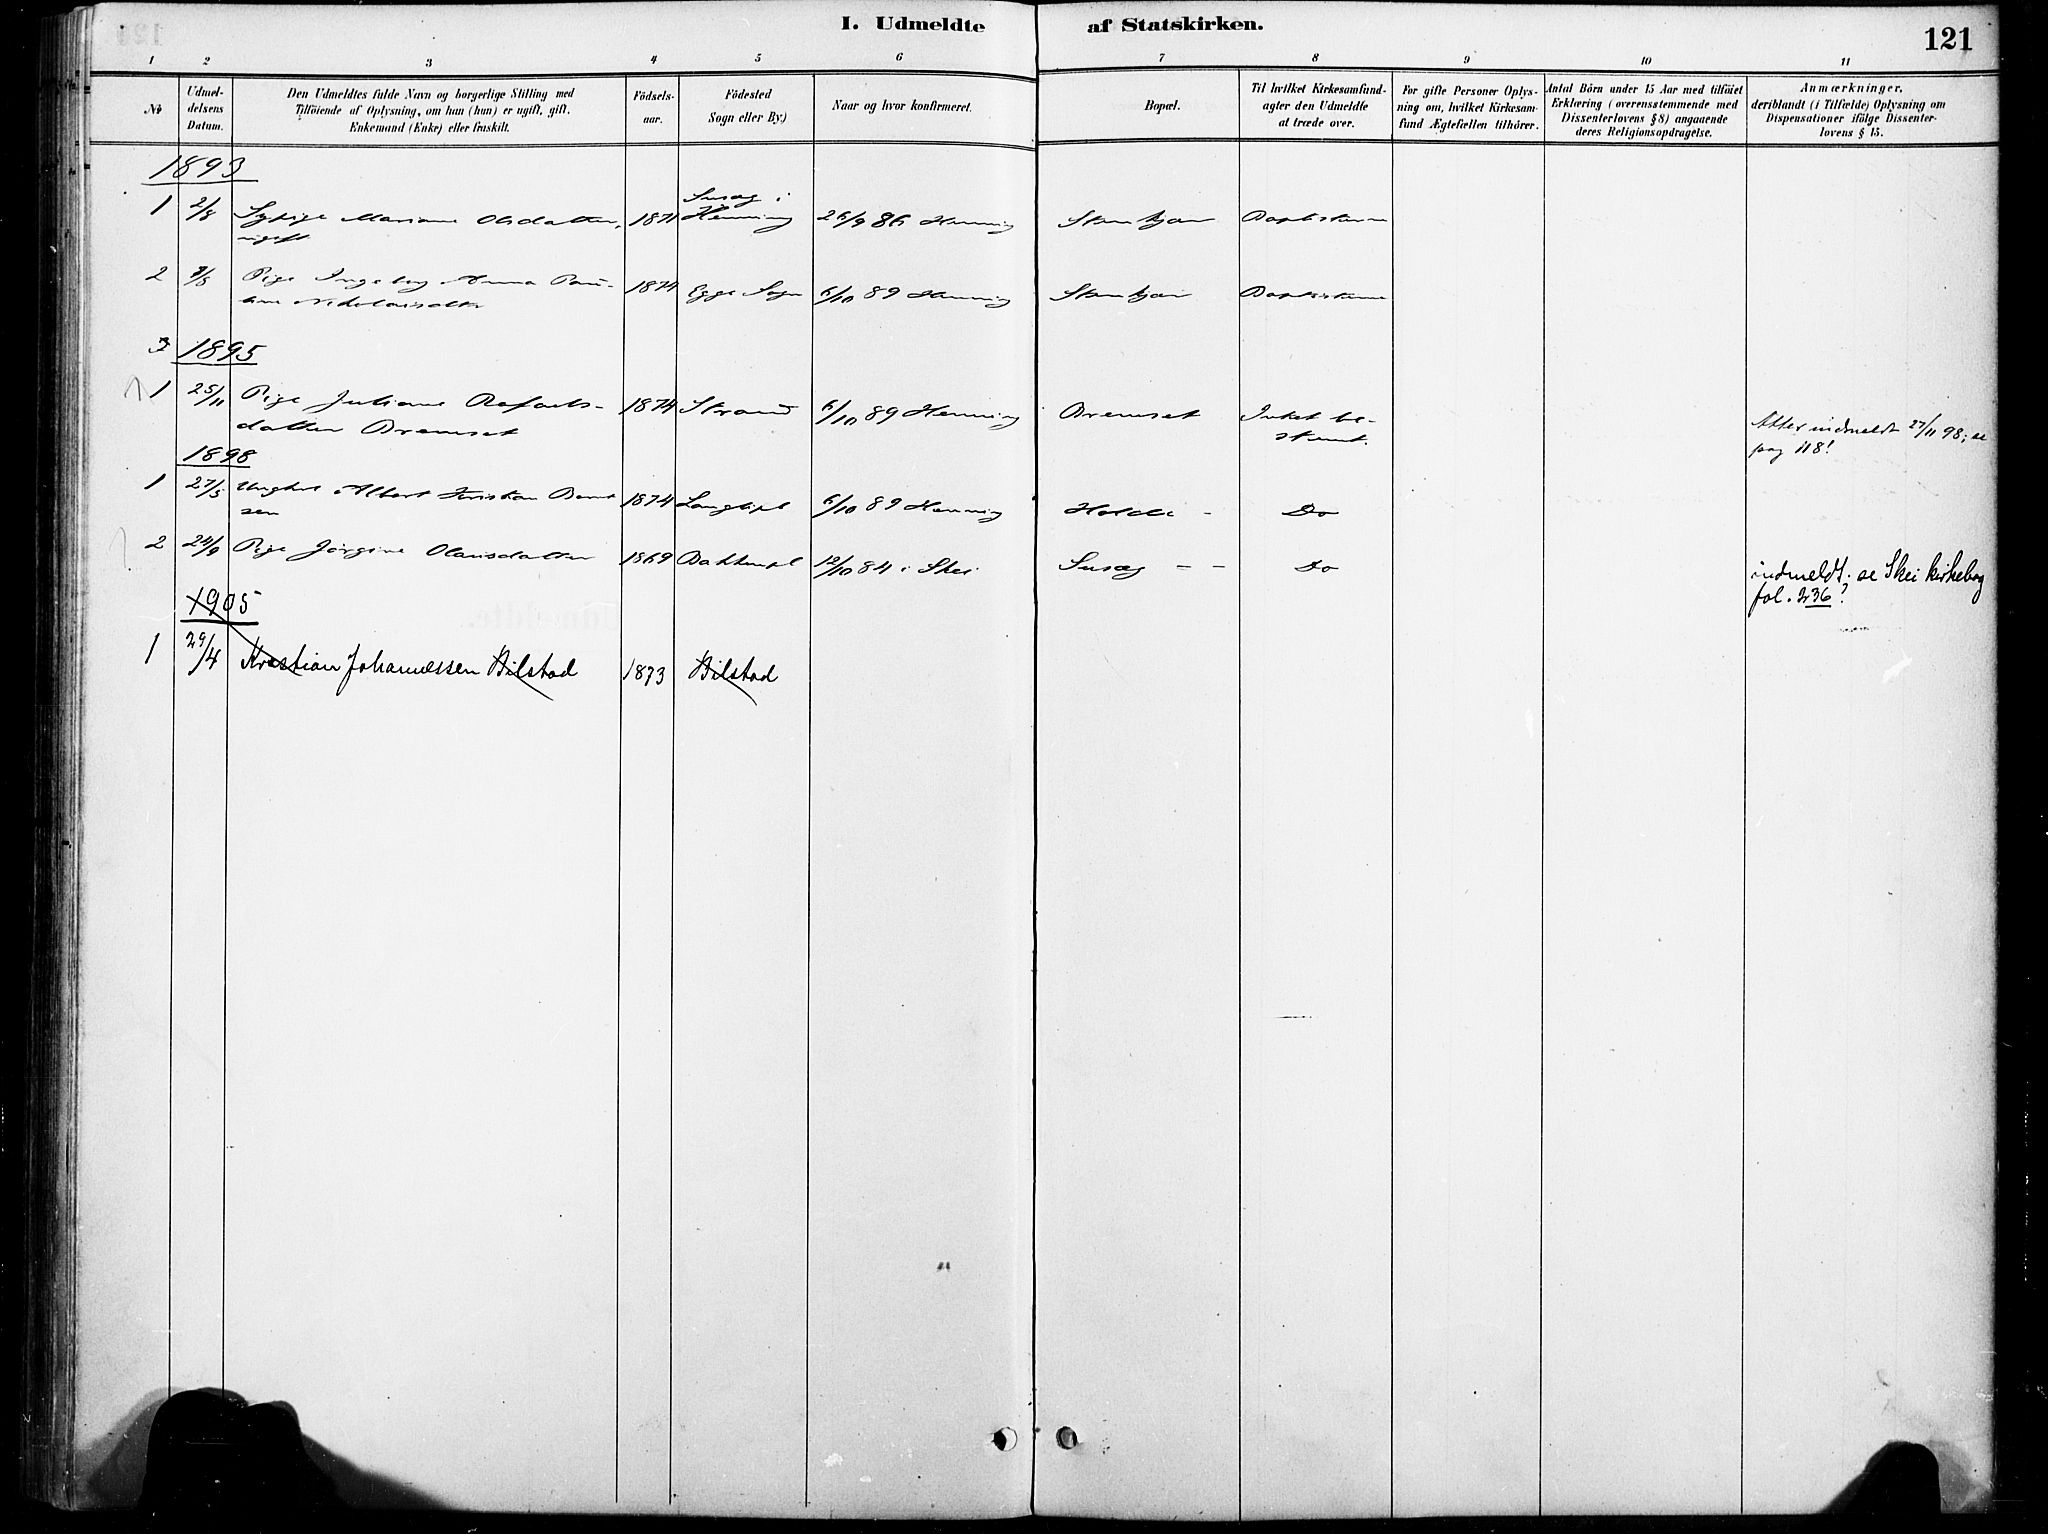 I. Udmeldte af Statskirken. 121
1 2 3 4 5 6 7 8 9 10 11
№
Udmel-
delsens
Datum.
Den Udmeldtes fulde Navn og borgerlige Stilling med
Tilføiende af Oplysning, om han (hun) er ugift, gift,
Enkemand (Enke) eller fraskilt.
Fødsels-
aar.
Fødested
Sogn eller By.)
Naar og hvor konfirmeret.
Bopæl.
Til hvilket Kirkesamfund
agter den Udmeldte
at træde over.
For gifte Personer Oplys-
ning om, hvilket Kirkesam-
fund Ægtefællen tilhører.
Antal Børn under 15 Aar med tilføiet
Erklæring (overensstemmende med
Dissenterlovens § 8) angaaende
deres Religionsopdragelse.
Anmærkninger,
deriblandt (i Tilfælde) Oplysning om
Dispensationer ifølge Dissenter-
lovens § 15.
1893
1 2/8 Sypige Mariane Olsdatter, 1871 Susæg i Henning 26/9 86 Henning Stenkjær Baptisterne
ugift
2 Pige Ingeborg Anna Pau- 1874 Egge Sogn 6/10 89 Henning Stenkjær Baptisterne
line Nikolaisdtr
3 1895
1 25/11 Pige Juliane Rafaels- 1874 Strand 6/10 89 Henning Bremset Intet be-
datter Bremset stemt.
Atter indmeldt 27/11 98; se
pag 118!
1898
1 27/5 Ungkrl Albert Kristian Bernt 1874 6/10 89 Henning Do
sen
2 24/9 Pige Jørgine Olausdatter 1869 12/10 84 i Skei Susæg - - Do
indmeldt; se Skei kirkebog
fol. 236!
1905
1 29/4 Kristian Johannessen Bilstad 1873 Bilstad